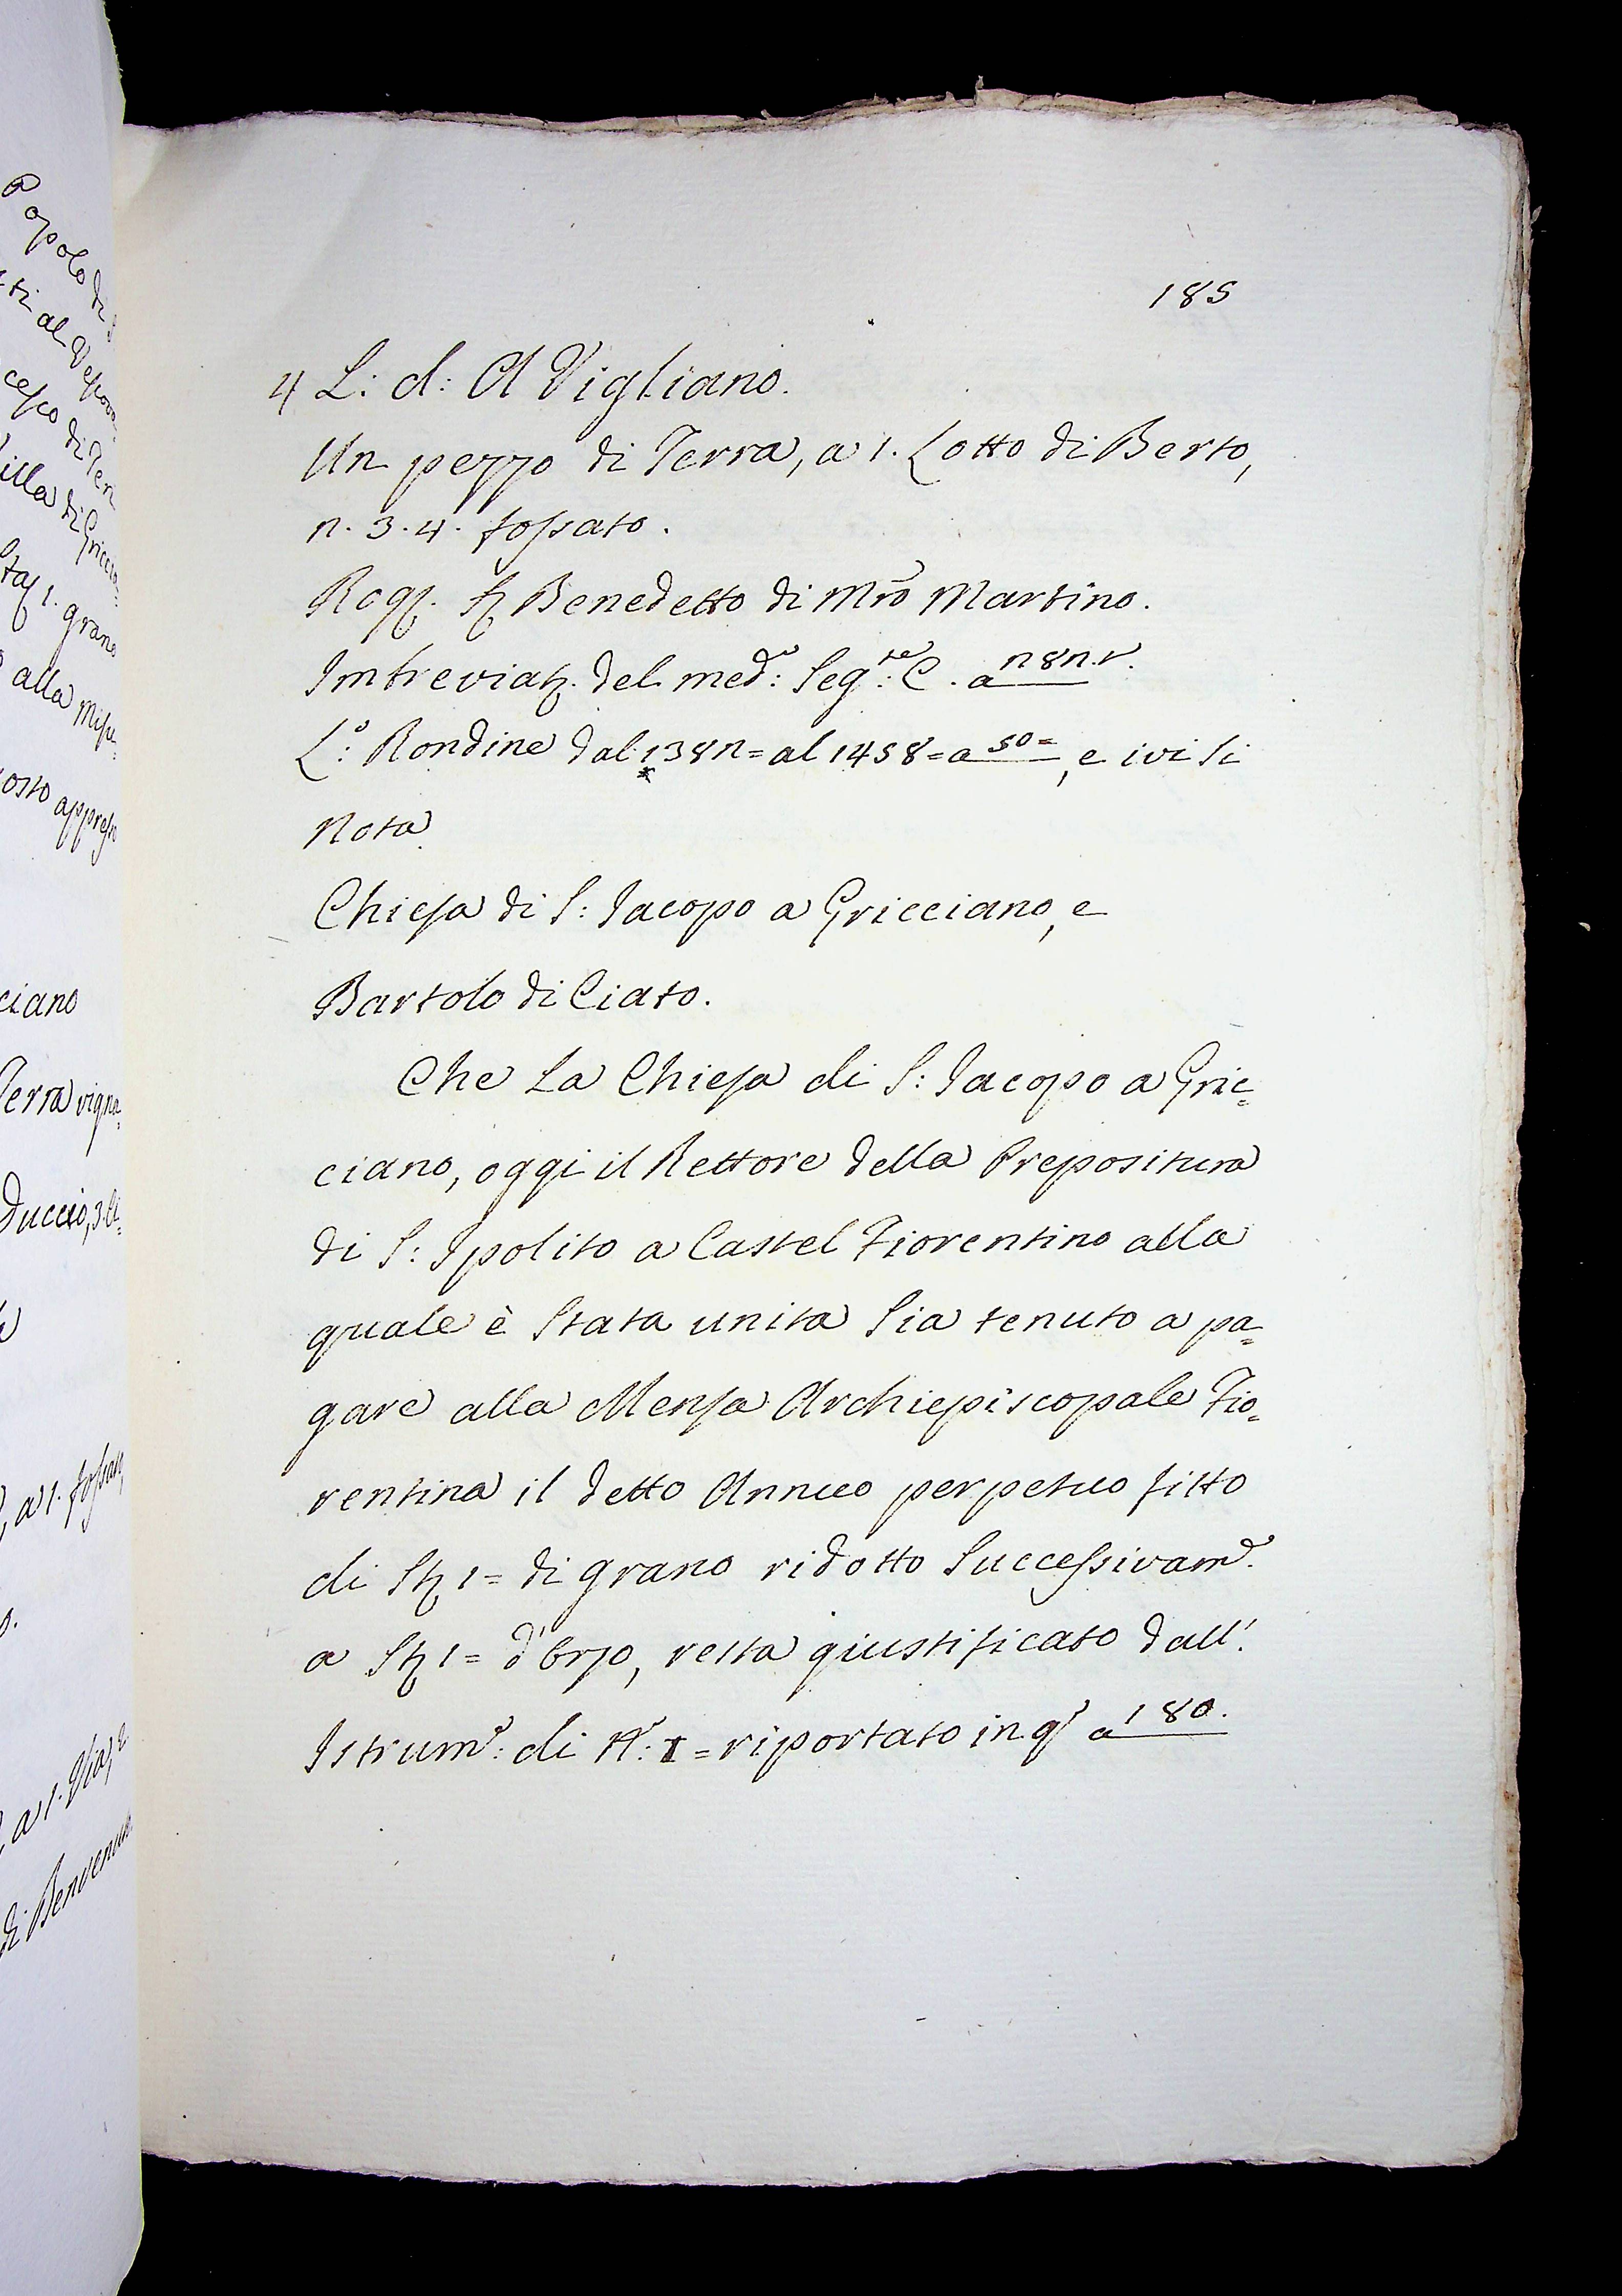 185
4 L: d: A Vigliano.
Un pezzo di Terra, a 1. Lotto di Berto,
n. 3. 4. fossato.
Rog. Benedetto di Mro Martino.
Imbreviaz. del med: Seg:te C. a
L:o Rondine dal 138n = al 1458 = a 50 =, e ivi si
nota
Chiesa di S: Jacopo a Gricciano, e
Bartolo di Ciato.
Che La Chiesa di S: Jacopo a Gric=
ciano, oggi il Rettore della Prepositura
di S: Ipolito a Castel Fiorentino alla
quale è Stata unita Sia tenuto a pa=
gare alla Mensa Archiepiscopale Fio=
rentina il detto Annuo perpetuo fitto
di St 1 = di grano ridotto Successivam.e
a St 1 = d'Orzo, resta giustificato dall'
Istrum.o: di N.o: I = riportato in q.o a 180.
Popolo di
sti al Vescovo
cesco di
Villa di Griccia=
Sta 1. grano
alla Misu=
osto appresso
ciano
Terra vigna=
Duccio, 3. Ci=
, a 1. fossato,
o.
, a 1. Via, 2
di Benvenuto